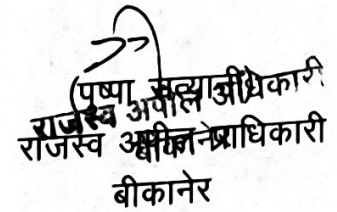 (पुष्पा सत्यानी)
राजस्व अपील अधिकारी
राजस्व अपील प्राधिकारी
बीकानेर
बीकानेर